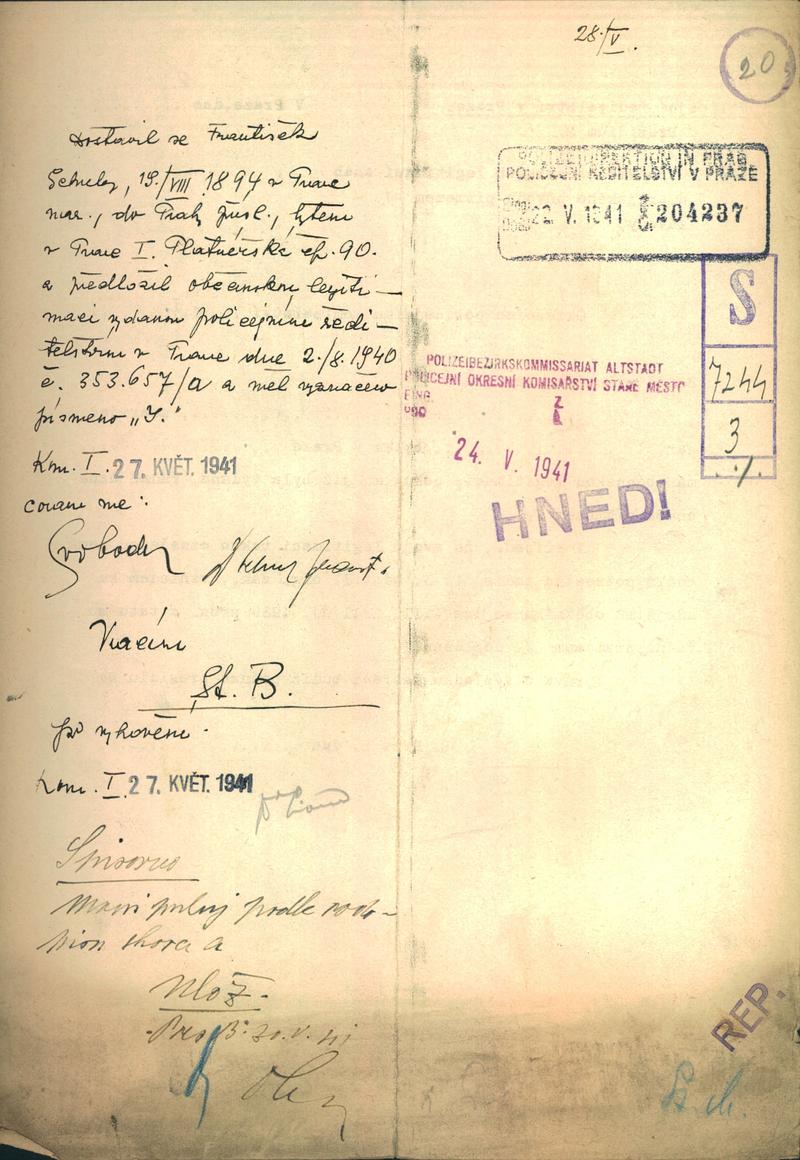 Dostavil se František
19./VIII 1894 v Praze
nar., do Prahy přísl., bytem
v Praze I. Platnéřská čp. 90.
a předložil občanskou legiti-
maci vydanou policejním ředi-
telstvím v Praze dne 2./8. 1940
č. 353.657/a a měl vyznačeno
písmeno „
Kom. I. 27. KVĚT. 1941
Svoboda
Vracím
St. B.
po vyhovění.
Kom. I. 27. KVĚT. 1941
Spisovno
Manipuluj podle
shora a
Ulož.
30.V.41
28./V.
20
POLIZEIDIREKTION IN PRAG
POLICEJNÍ ŘEDITELSTVÍ V PRAZE
22. V. 1941 204237
S
7244
3
POLIZEIBEZIRKSKOMMISSARIAT ALTSTADT
POLICEJNÍ OKRESNÍ KOMISAŘSTVÍ STARÉ MĚSTO
24. V. 1941
HNED!
REP.